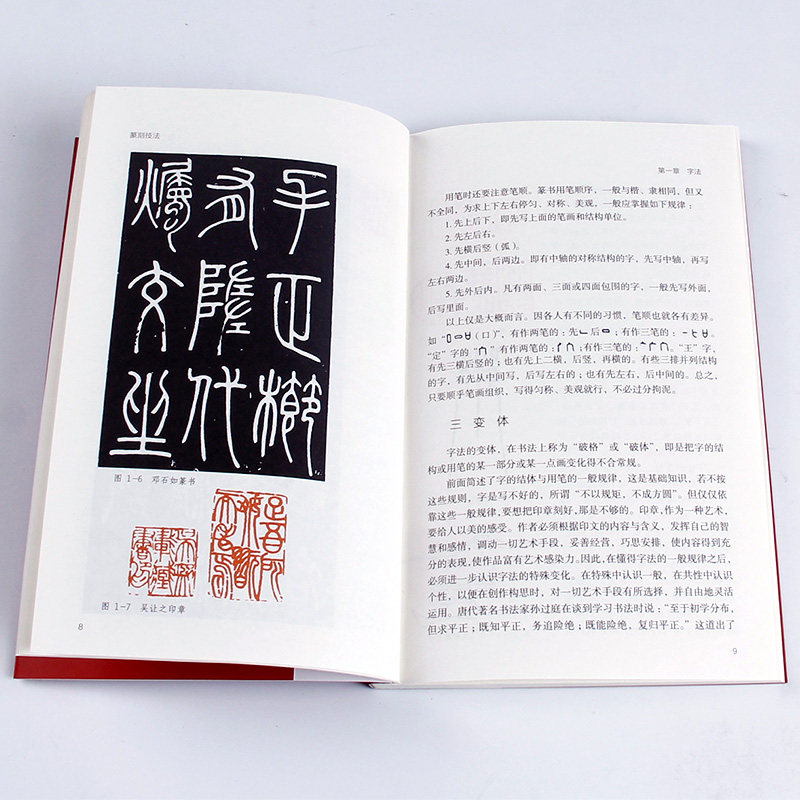 篆刻技法
图 1-6 邓石如篆书
图 1-7 吴让之印章
8
第一章 字法
用笔时还要注意笔顺。篆书用笔顺序，一般与楷、隶相同，但又
不全同，为求上下左右停匀、对称、美观，一般应掌握如下规律：
1. 先上后下，即先写上面的笔画和结构单位。
2. 先左后右。
3. 先横后竖（弧）。
4. 先中间，后两边。即有中轴的对称结构的字，先写中轴，再写
左右两边。
5. 先外后内。凡有两面、三面或四面包围的字，一般先写外面，
后写里面。
以上仅是大概而言。因各人有不同的习惯，笔顺也就各有差异。
如“（口）”，有作两笔的：先后；有作三笔的：。
“定”字的“”有作两笔的：；有作三笔的：。“王”字，
有先三横后竖的；也有先上二横，后竖，再横的。有些三排并列结构
的字，有先从中间写，后写左右的；也有先左右，后中间的。总之，
只要顺乎笔画组织，写得匀称、美观就行，不必过分拘泥。
三 变 体
字法的变体，在书法上称为“破格”或“破体”，即是把字的结
构或用笔的某一部分或某一点画变化得不合常规。
前面简述了字的结体与用笔的一般规律，这是基础知识，若不按
这些规则，字是写不好的，所谓“不以规矩，不成方圆”。但仅仅依
靠这些一般规律，要想把印章刻好，那是不够的。印章，作为一种艺术，
要给人以美的感受。作者必须根据印文的内容与含义，发挥自己的智
慧和感情，调动一切艺术手段，妥善经营，巧思安排，使内容得到充
分的表现，使作品富有艺术感染力。因此，在懂得字法的一般规律之后，
必须进一步认识字法的特殊变化。在特殊中认识一般，在共性中认识
个性，以便在创作构思时，对一切艺术手段有所选择，并自由地灵活
运用。唐代著名书法家孙过庭在谈到学习书法时说：“至于初学分布，
但求平正；既知平正，务追险绝；既能险绝，复归平正。”这道出了
9